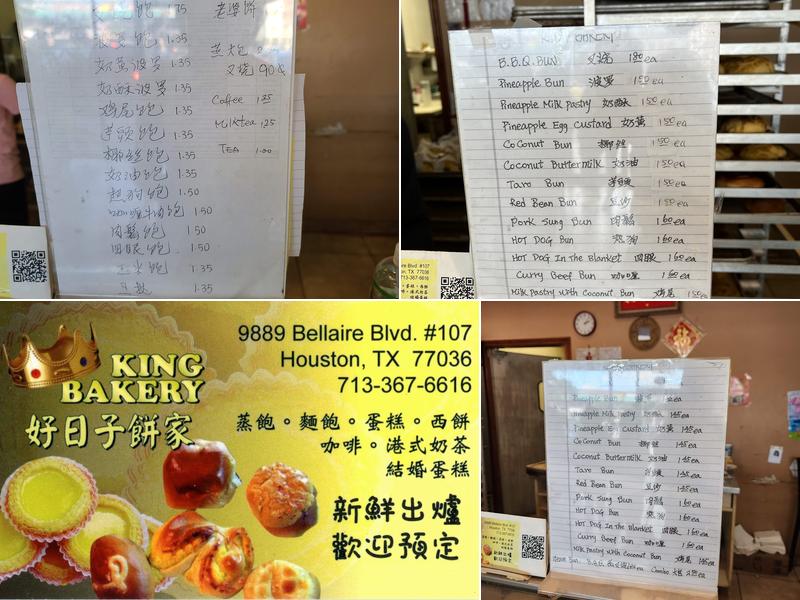 叉燒飽 1.75
老婆餅
菠蘿飽 1.35
奶黃菠罗 1.35
奶酥菠罗 1.35
鸡尾飽 1.35
芋頭飽 1.35
椰丝飽 1.35
奶油飽 1.35
热狗飽 1.50
咖喱牛肉飽 1.50
肉鬆飽 1.50
1.50
1.35
1.35
蒸飽
叉烧 90¢
Coffee 1.25
Milktea 1.25
TEA 1.00
B.B.Q. BUN 叉烧 ea
Pineapple Bun 菠罗 150 ea
Pineapple Milk Pastry 奶酥 150 ea
Pineapple Egg Custard 奶黃 150 ea
CoConut Bun 椰丝 150 ea
Coconut Buttermilk 奶油 150 ea
Taro Bun 芋頭 150 ea
Red Bean Bun 豆沙 150 ea
Pork Sung Bun 肉鬆 160 ea
HOT DOG Bun 热狗 160 ea
HOT DOG In The Blanket 160 ea
Curry Beef Bun 咖喱 160 ea
Milk Pastry with Coconut Bun 鸡尾 150
#107
TX 77036
713-367-6616
KING BAKERY
好日子餅家
9889 Bellaire Blvd. #107
Houston, TX 77036
713-367-6616
蒸飽。麵飽。蛋糕。西餅
咖啡。港式奶茶
結婚蛋糕
新鮮出爐
歡迎預定
Pineapple Bun ea
Pineapple Milk Pastry 奶酥 145 ea
Pineapple Egg Custard 奶黃 145 ea
CoConut Bun 椰丝 145 ea
Coconut Buttermilk 奶油 145 ea
Taro Bun 芋頭 145 ea
Red Bean Bun 豆沙 145 ea
Pork Sung Bun 肉鬆 160 ea
HOT DOG Bun 热狗 160 ea
HOT DOG In The Blanket 160 ea
Curry Beef Bun 咖喱 160 ea
Milk Pastry with Coconut Bun 鸡尾 ea